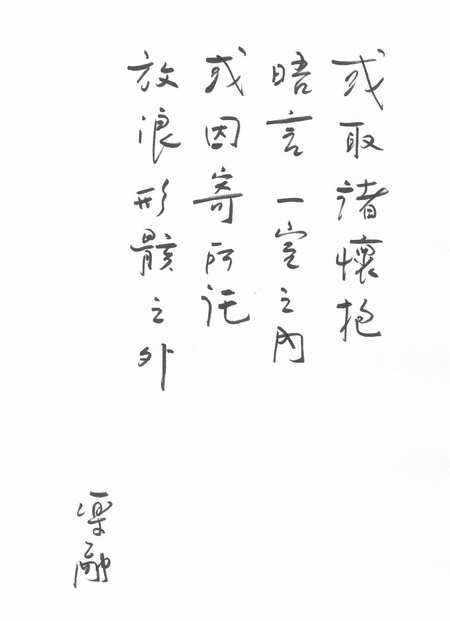 或取諸懷抱
晤言一室之內
或因寄所託
放浪形骸之外
融